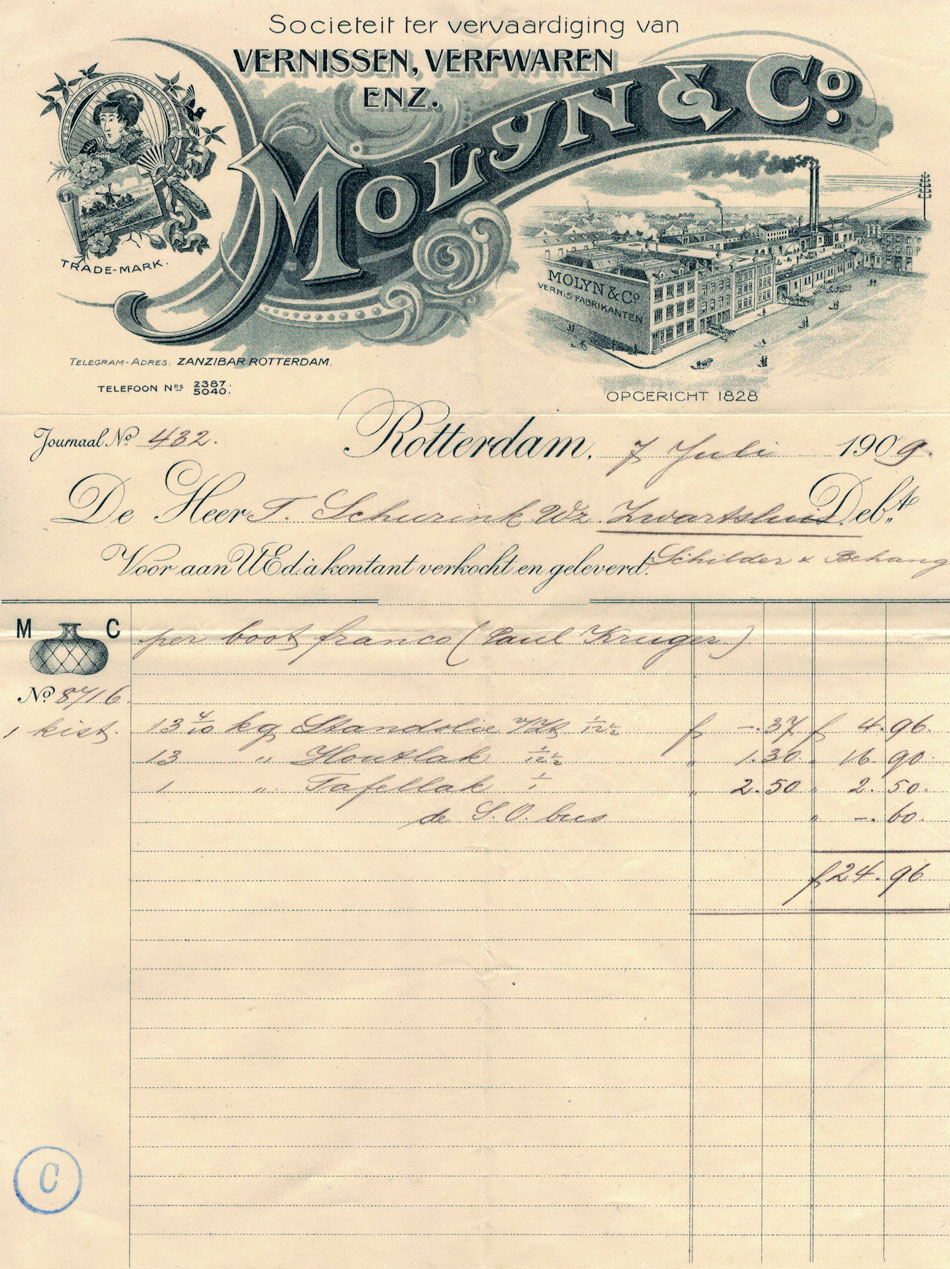 Societeit ter vervaardiging van
VERNISSEN, VERFWAREN
ENZ.
MOLYN & Co.
TRADE-MARK.
MOLYN & Co
VERNIS FABRIKANTEN
TELEGRAM-ADRES. ZANZIBAR ROTTERDAM.
TELEFOON Nrs 2387. 5040.
OPGERICHT 1828
Journaal No. 432.
Rotterdam, 7 Juli 1909.
De Heer T. Schurink Wz. Zwartsluis Debt.
Voor aan UEd. à kontant verkocht en geleverd. Schilder & Behang
M C
per boot franco (Paul Kruger)
No. 8716.
1 kist. 13 4/10 kg Standolie 1/12½ f -.37 f 4.96
13 " Houtlak 1/12½ " 1.30 " 16.90.
1 " Tafellak 1/1 " 2.50 " 2.50.
de S.O. bus " -.60.
f 24.96
C